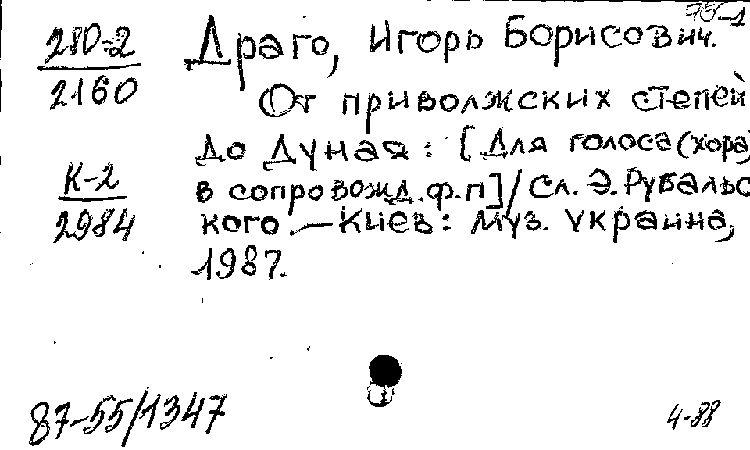 75-1
280-2
2160
Драго, Игорь Борисович.
От приволжских степей
до Дуная : [Для голоса (хора)
в сопровожд. ф.п] / Сл. Э. Рубальс
кого. — Киев : Муз. Украина,
1987.
К-2
2984
87-55/1347
4-88